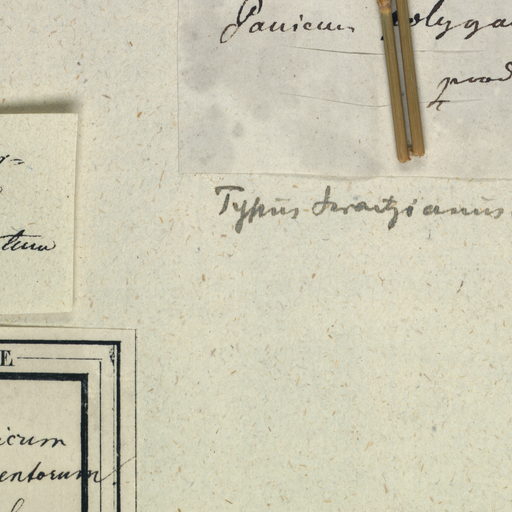 Panicum polyga
prod
Typus Swartzianus
tum
E
icum
entorum